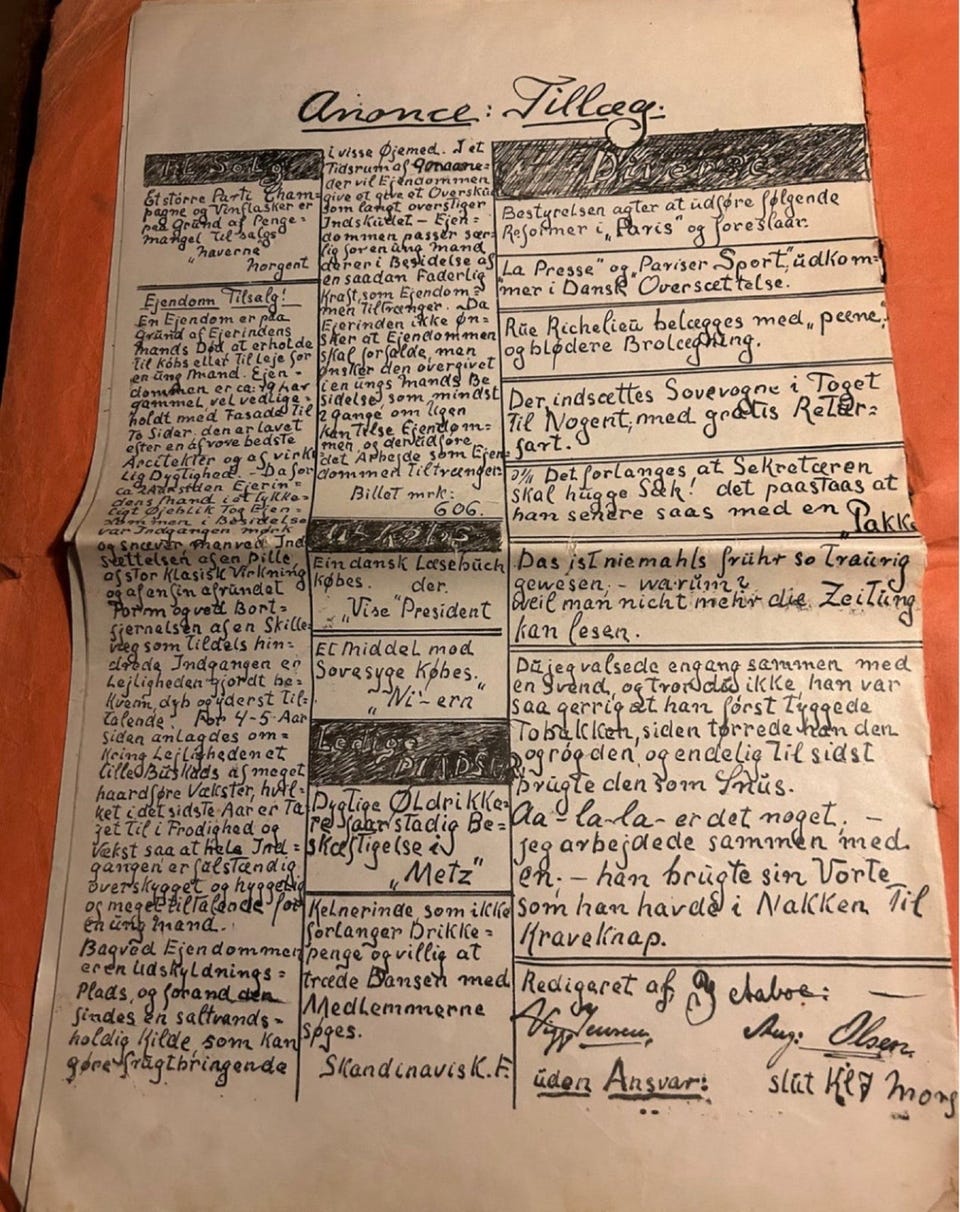 Anonce: Tillæg.
Til Salg
Et større Parti Cham=
pagne og Vinflasker er
paa Grund af Penge=
mangel til salgs
"naverne"
Norgent
Ejendom Tilsalg!
En Ejendom er paa
Grund af Ejerindens
Mands Død at erholde
til Købs eller til Leje for
en üng Mand. Ejen=
dommen er ca: 19 Aar
gammel, vel vedlige=
holdt med Fasade til
To Sider, den er lavet
efter en af vore bedste
Arcitekter og af virke
lig Dygtighed. - Da for
ca 2 Aar siden Ejerin=
dens Mand i et lykke=
ligt Øjeblik Tog Ejen=
dommen i Besidelse
var Indgangen mørk
og snæver, man ved Ind
sættelsen af en Pille
af stor Klasisk Virkning
og af en fin afründet
Form og ved Bort=
fjernelsen af en Skille=
væg som tildels hin=
drede Indgangen er
Lejligheden gjordt be=
kvem, dyb og yderst til=
talende. For 4-5 Aar
siden anlagdes om=
kring Lejligheden et
lille Büskads af meget
haardføre Vækster, hvil=
ket i det sidste Aar er Ta
get til i Frodighed og
Vækst saa at hele Ind=
gangen er fülstændig
overskygget og hyggelig
og meget tiltalende for
en üng Mand.
Bagved Ejendommen
er en Udskyldnings=
Plads, og forand den
findes en saltvands=
holdig Kilde som kan
gøre frügtbringende
i visse Øjemed. I et
Tidsrum af 9 Maane=
der vil Ejendommen
give et give et Overskü
som langt overstiger
Indsküdet - Ejen=
dommen passer sær=
lig for en üng Mand
der er i Besidelse af
en saadan Faderlig
Kraft, som Ejendom=
men Tiltrænger. Da
Ejerinden ikke øn=
sker at Ejendommen
skal forfalde, men
ønsker den overgivet
i en üngs Mands Be
sidelse, som mindst
2 Gange om Ugen
kan Tilse Ejendom=
men, og derüdføre
det Arbejde som Ejen=
dommen Tiltrænger.
Billet mrk:
606.
Til Købs
Ein dansk Læsebüch
købes. der.
"Vise" President
Et Middel mod
Sovesyge Købes.
"Ni-ern"
Ledige
Pladser
Dygtige Øldrikke=
re faar stadig Be=
skæftigelse i
"Metz"
Kelnerinde, som ikke
forlanger Drikke=
penge og villig at
træde Dansen med
Medlemmerne
søges.
Skandinavisk. F.
Diverse
Bestyrelsen agter at üdføre følgende
Reformer i "Paris" og foreslaar.
"La Presse" og "Pariser Sport", üdkom=
mer i Dansk Oversættelse.
Rüe Richelieü belægges med "pæne"
og blødere Brolægning.
Der indsættes Sovevogne i Toget
til Nogent, med gratis Retür=
fart.
Det forlanges at Sekretæren
skal hügge Sæk! det paastaas at
han senere saas med en "Pakk
Das ist niemahls frühr so traürig
gewesen; - warüm?
Weil man nicht mehr die Zeitüng
kan lesen.
Dü jeg valsede engang sammen med
en Svend, og tror dü ikke, han var
saa gerrig at han först tyggede
Tobakken, siden tørrede han den
og røg den, og endelig til sidst
brügte den som Snüs.
Aa-la-la- er det noget. -
jeg arbejdede sammen med
en; - han brügte sin Vorte
som han havde i Nakken til
Kraveknap.
Redigaret af Aaboe: -
Viggo Jensen. Aug: Olsen.
üden Ansvar: slüt Kl 7 Morg